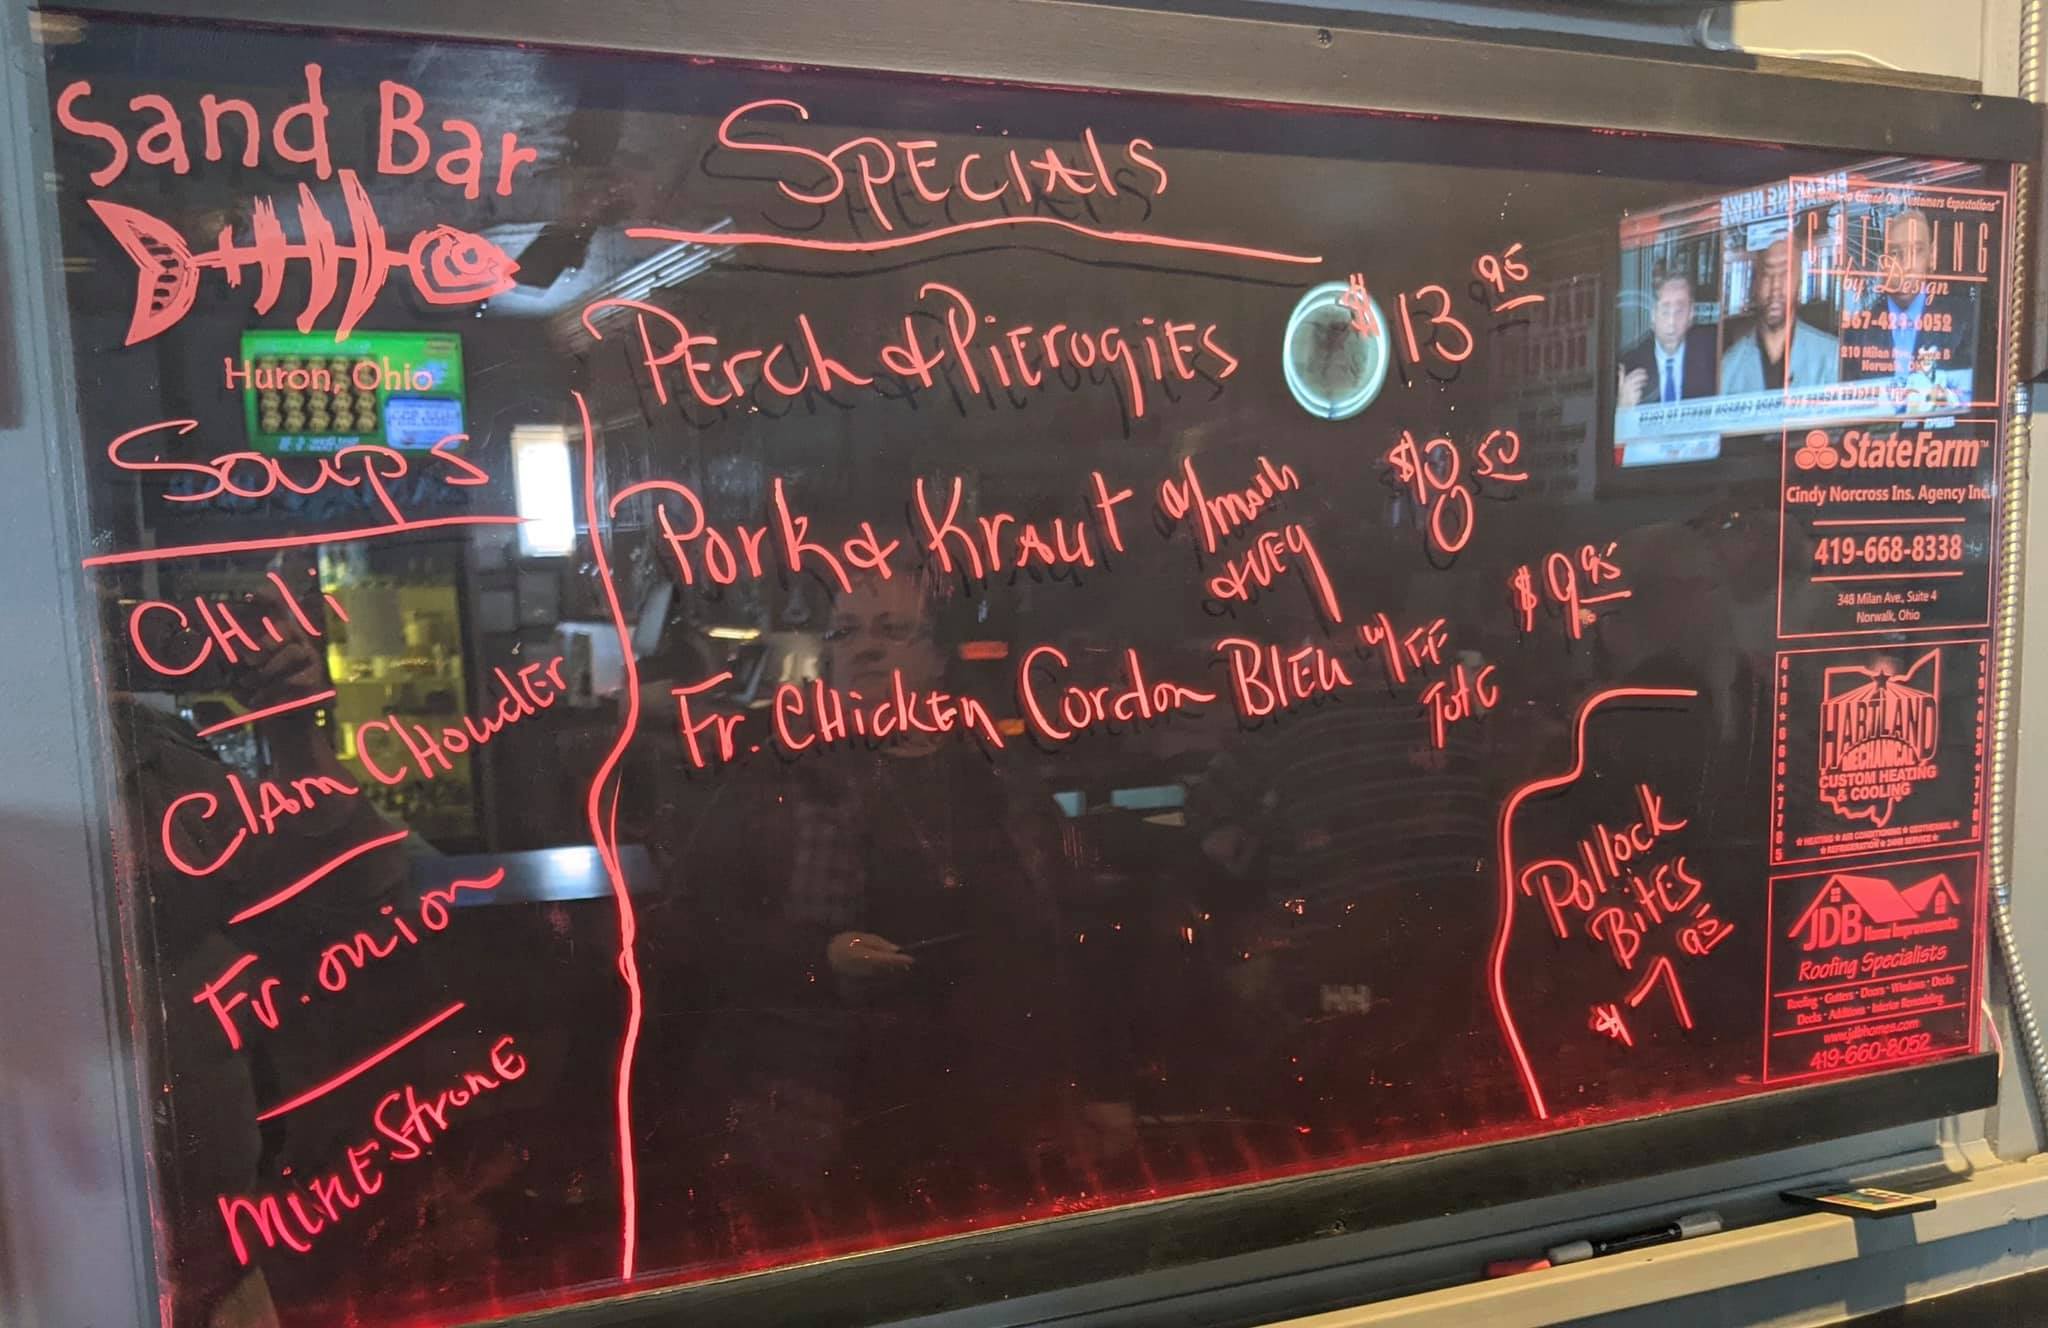 Sand Bar
Huron, Ohio
Soups
Chili
Clam Chowder
Fr. onion
Minestrone
Specials
Perch & Pierogies $13.95
Pork & Kraut w/mash
& veg
Fr. Chicken Cordon Bleu w/ FF $9.95
Pollock
Bites
$7.95
CATERING
by Design
210 Milan Ave., Suite B
Norwalk, OH
StateFarm™
Cindy Norcross Ins. Agency Inc.
419-668-8338
348 Milan Ave., Suite 4
Norwalk, Ohio
HARTLAND
MECHANICAL
CUSTOM HEATING
& COOLING
★ HEATING ★ AIR CONDITIONING ★ GEOTHERMAL ★
★ REFRIGERATION ★ 24HR SERVICE ★
JDB Home Improvements
Roofing Specialists
Roofing · Gutters · Doors · Windows · Decks
Decks · Additions · Interior Remodeling
www.jdbhomes.com
419-660-8052
BREAKING NEWS